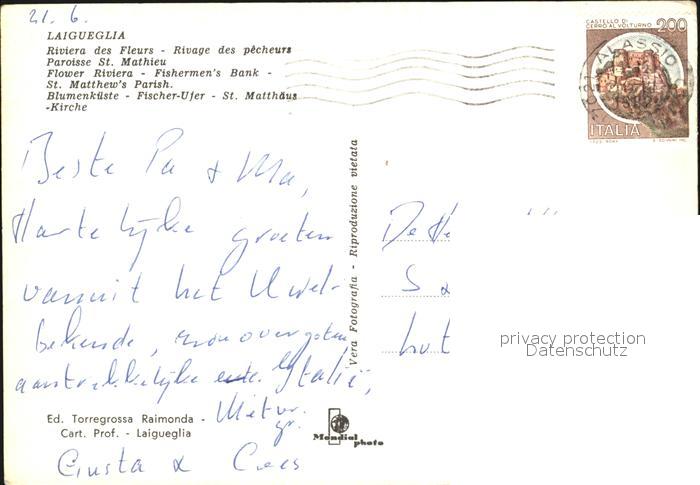 21.6.
LAIGUEGLIA
Riviera des Fleurs - Rivage des pêcheurs
Paroisse St. Mathieu
Flower Riviera - Fishermen's Bank -
St. Matthew's Parish.
Blumenküste - Fischer-Ufer - St. Matthäus
-Kirche
CASTELLO DI
CERRO AL VOLTURNO 200
ALASSIO
ITALIA
Beste Pa + Ma,
Hartelijke groeten
vanuit het U wel-
bekende, zonovergoten
aantrekkelijke Italië,
Met vr.
gr.
Giusta & Cees
Vera Fotografia - Riproduzione vietata
De He
S
hut
privacy protection
Datenschutz
Ed. Torregrossa Raimonda -
Cart. Prof. - Laigueglia
Mondial photo